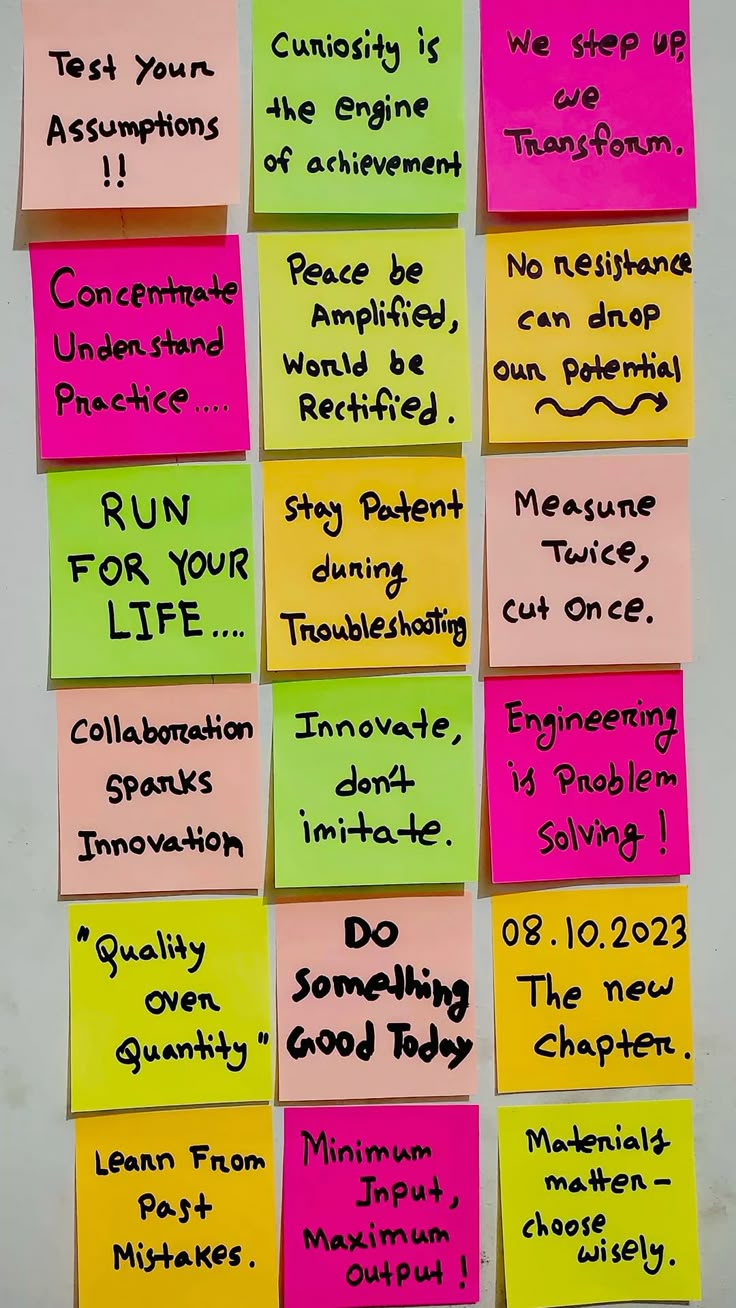 Test Your
Assumptions
!!
Curiosity is
the engine
of achievement
We step up,
we
Transform.
Concentrate
Understand
Practice....
Peace be
Amplified,
World be
Rectified.
No resistance
can drop
our potential
RUN
FOR YOUR
LIFE....
Stay Patent
during
Troubleshooting
Measure
Twice,
cut once.
Collaboration
sparks
Innovation
Innovate,
don't
imitate.
Engineering
is Problem
Solving!
"Quality
over
Quantity"
Do
Something
Good Today
08.10.2023
The new
chapter.
Learn From
Past
Mistakes.
Minimum
Input,
Maximum
Output!
Materials
matter-
choose
wisely.